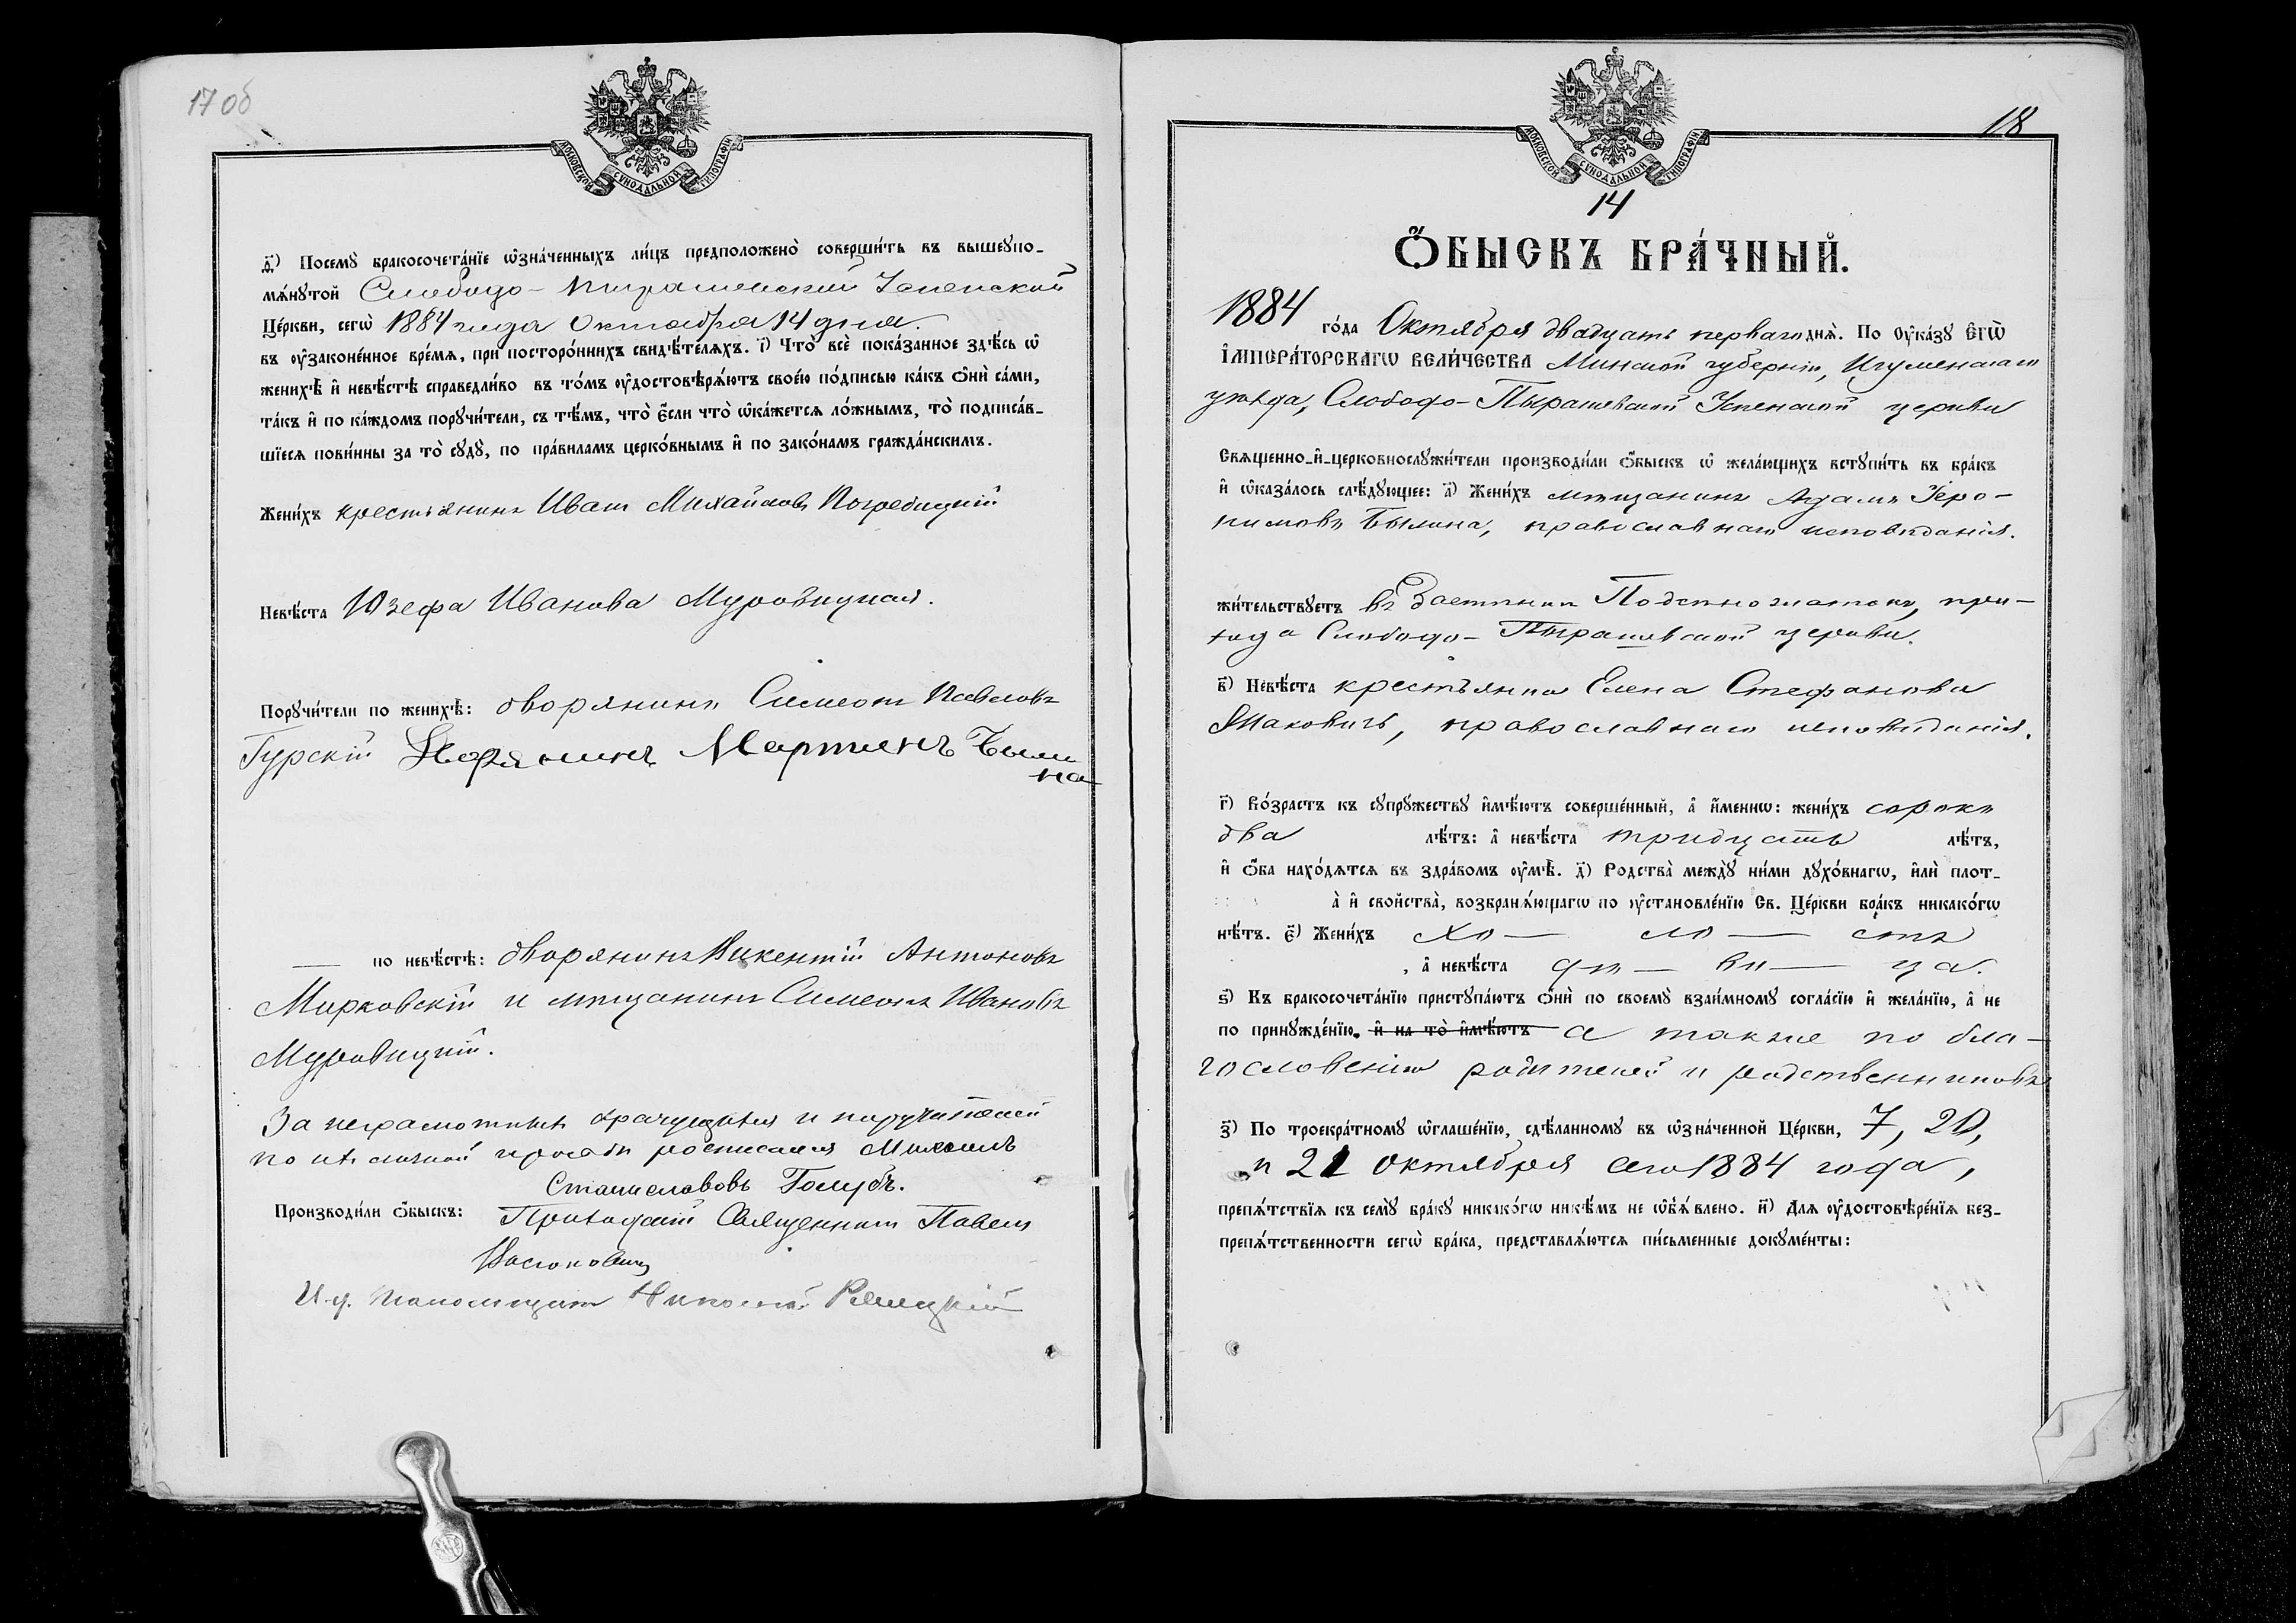 17 об
МОСКОВСКОЙ СѴНОДАЛЬНОЙ ТИПОГРАФІИ
ѳ҃) Посемꙋ бракосочета́нїе ѡ҆зна́ченныхъ ли́цъ предположено̀ соверши́ть въ вышеꙋпо-
мѧ́нꙋтой Слободо-Пырашевской Успенской
Це́ркви, сегѡ̀ 1884 года Октября 14 дня.
въ оу҆законе́нное вре́мѧ, при посторо́ннихъ свидѣ́телѧхъ. і҃) Что̀ всѐ пока́занное здѣ́сь ѡ҆
женихѣ̀ и҆ невѣ́стѣ справедли́во въ то́мъ оу҆достовѣрѧ́ютъ свое́ю по́дписью ка́къ ѻ҆нѝ са́ми,
та́къ и҆ по ка́ждомъ порꙋчи́тели, съ тѣ́мъ, что̀ є҆́сли что̀ ѡ҆ка́жетсѧ ло́жнымъ, то̀ подписа́в-
шїесѧ пови́нны за то̀ сꙋдꙋ̀, по пра́виламъ церко́внымъ и҆ по зако́намъ гражда́нскимъ.
Жени́хъ крестьянинъ Иванъ Михайловъ Погребицкій
Невѣ́ста Юзефа Иванова Муровицкая.
Порꙋчи́тели по женихѣ̀: дворянинъ Симеонъ Павловъ
Гурскій Дворянинъ Мартинъ Были
на
— по невѣ́стѣ: дворянинъ Викентій Антоновъ
Мирковскій и мѣщанинъ Симеонъ Ивановъ
Муровицкій.
За неграмотныхъ брачущихся и поручителей
по ихъ личной просьбѣ росписался Михаилъ
Станиславовъ Голубъ.
Производи́ли ѻ҆́быскъ: Приходскій Священникъ Павелъ
И. д. псаломщика Николай
18
МОСКОВСКОЙ СѴНОДАЛЬНОЙ ТИПОГРАФІИ
14
Ѻ҆́БЫСКЪ БРА́ЧНЫЙ.
1884 го́да Октября двадцать перваго днѧ̀. По оу҆ка́зꙋ Є҆гѡ̀
І҆мпера́торскагѡ вели́чества Минской губерніи, Игуменскаго
уѣзда, Слободо-Пырашевской Успенской церкви
Свѧщенно-и҆-церковнослꙋжи́тели производи́ли ѻ҆́быскъ ѡ҆ жела́ющихъ встꙋпи́ть въ бра́къ
и҆ ѡ҆каза́лось слѣ́дꙋющее: а҃) Жени́хъ мѣщанинъ Адамъ Іеро-
нимовъ Былина, православнаго исповѣданія.
жи́тельствꙋетъ въ застѣнкѣ, при-
хода Слободо-Пырашевской церкви.
в҃) Невѣ́ста крестьянка Елена Стефанова
Маковичъ, православнаго исповѣданія.
г҃) Во́зрастъ къ сꙋпрꙋ́жествꙋ и҆мѣ́ютъ соверше́нный, а҆ и҆́меннѡ: жени́хъ сорокъ
два лѣ́тъ: а҆ невѣ́ста тридцать лѣ́тъ,
и҆ ѻ҆́ба нахо́дѧтсѧ въ здра́вомъ оу҆мѣ̀. д҃) Родства̀ междꙋ̀ ни́ми дꙋхо́внагѡ, и҆лѝ плот-
а̀ и҆ сво́йства̀, возбранѧ́ющагѡ по оу҆становле́нїю Св. Це́ркви бра́къ никако́гѡ
нѣ́тъ. є҃) Жени́хъ хо — ло — стъ
, а҆ невѣ́ста дѣ — ви — ца.
ѕ҃) Къ бракосочета́нїю пристꙋпа́ютъ ѻ҆нѝ по своемꙋ̀ взаи́мномꙋ согла́сїю и҆ жела́нїю, а҆ не
по принꙋжде́нїю. и҆ на то̀ и҆мѣ́ютъ а также по бла-
гословенію родителей и родственниковъ
з҃) По троекра́тномꙋ ѡ҆глаше́нїю, сдѣ́ланномꙋ въ ѡ҆зна́ченной Це́ркви, 7, 20,
и 21 Октября сего 1884 года,
препѧ́тствїѧ къ семꙋ̀ бра́кꙋ никако́гѡ никѣ́мъ не ѡ҆б̾ѧ́влено. и҃) Длѧ оу҆достовѣре́нїѧ без-
препѧ́тственности сегѡ̀ бра́ка, представлѧ́ютсѧ пи́сьменные докꙋме́нты: